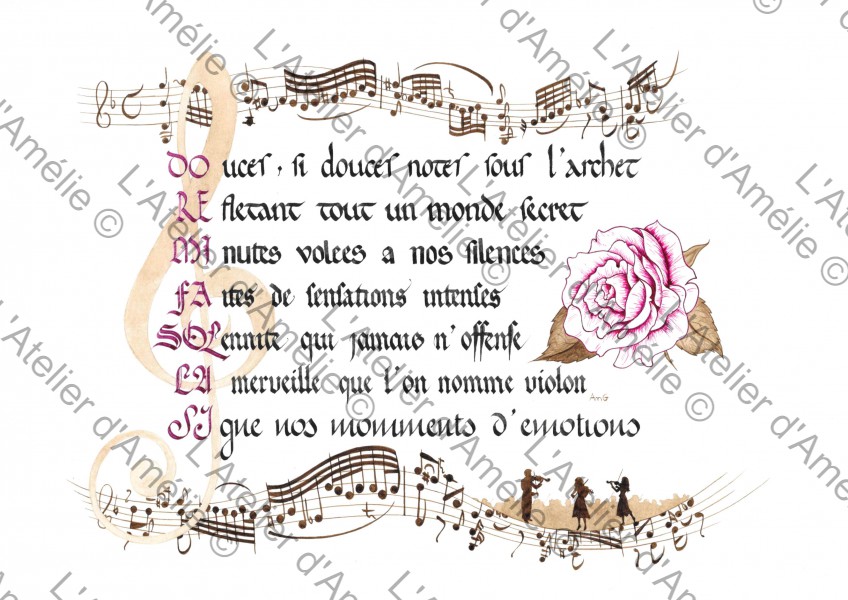 DOuces, si douces notes sous l'archet
REfletant tout un monde secret
MInutes volees a nos silences
FAites de sensations intenses
SOLennite qui jamais n'offense
LA merveille que l'on nomme violon
AmG
SIgne nos momments d'emotions
L'Atelier d'Amélie ©